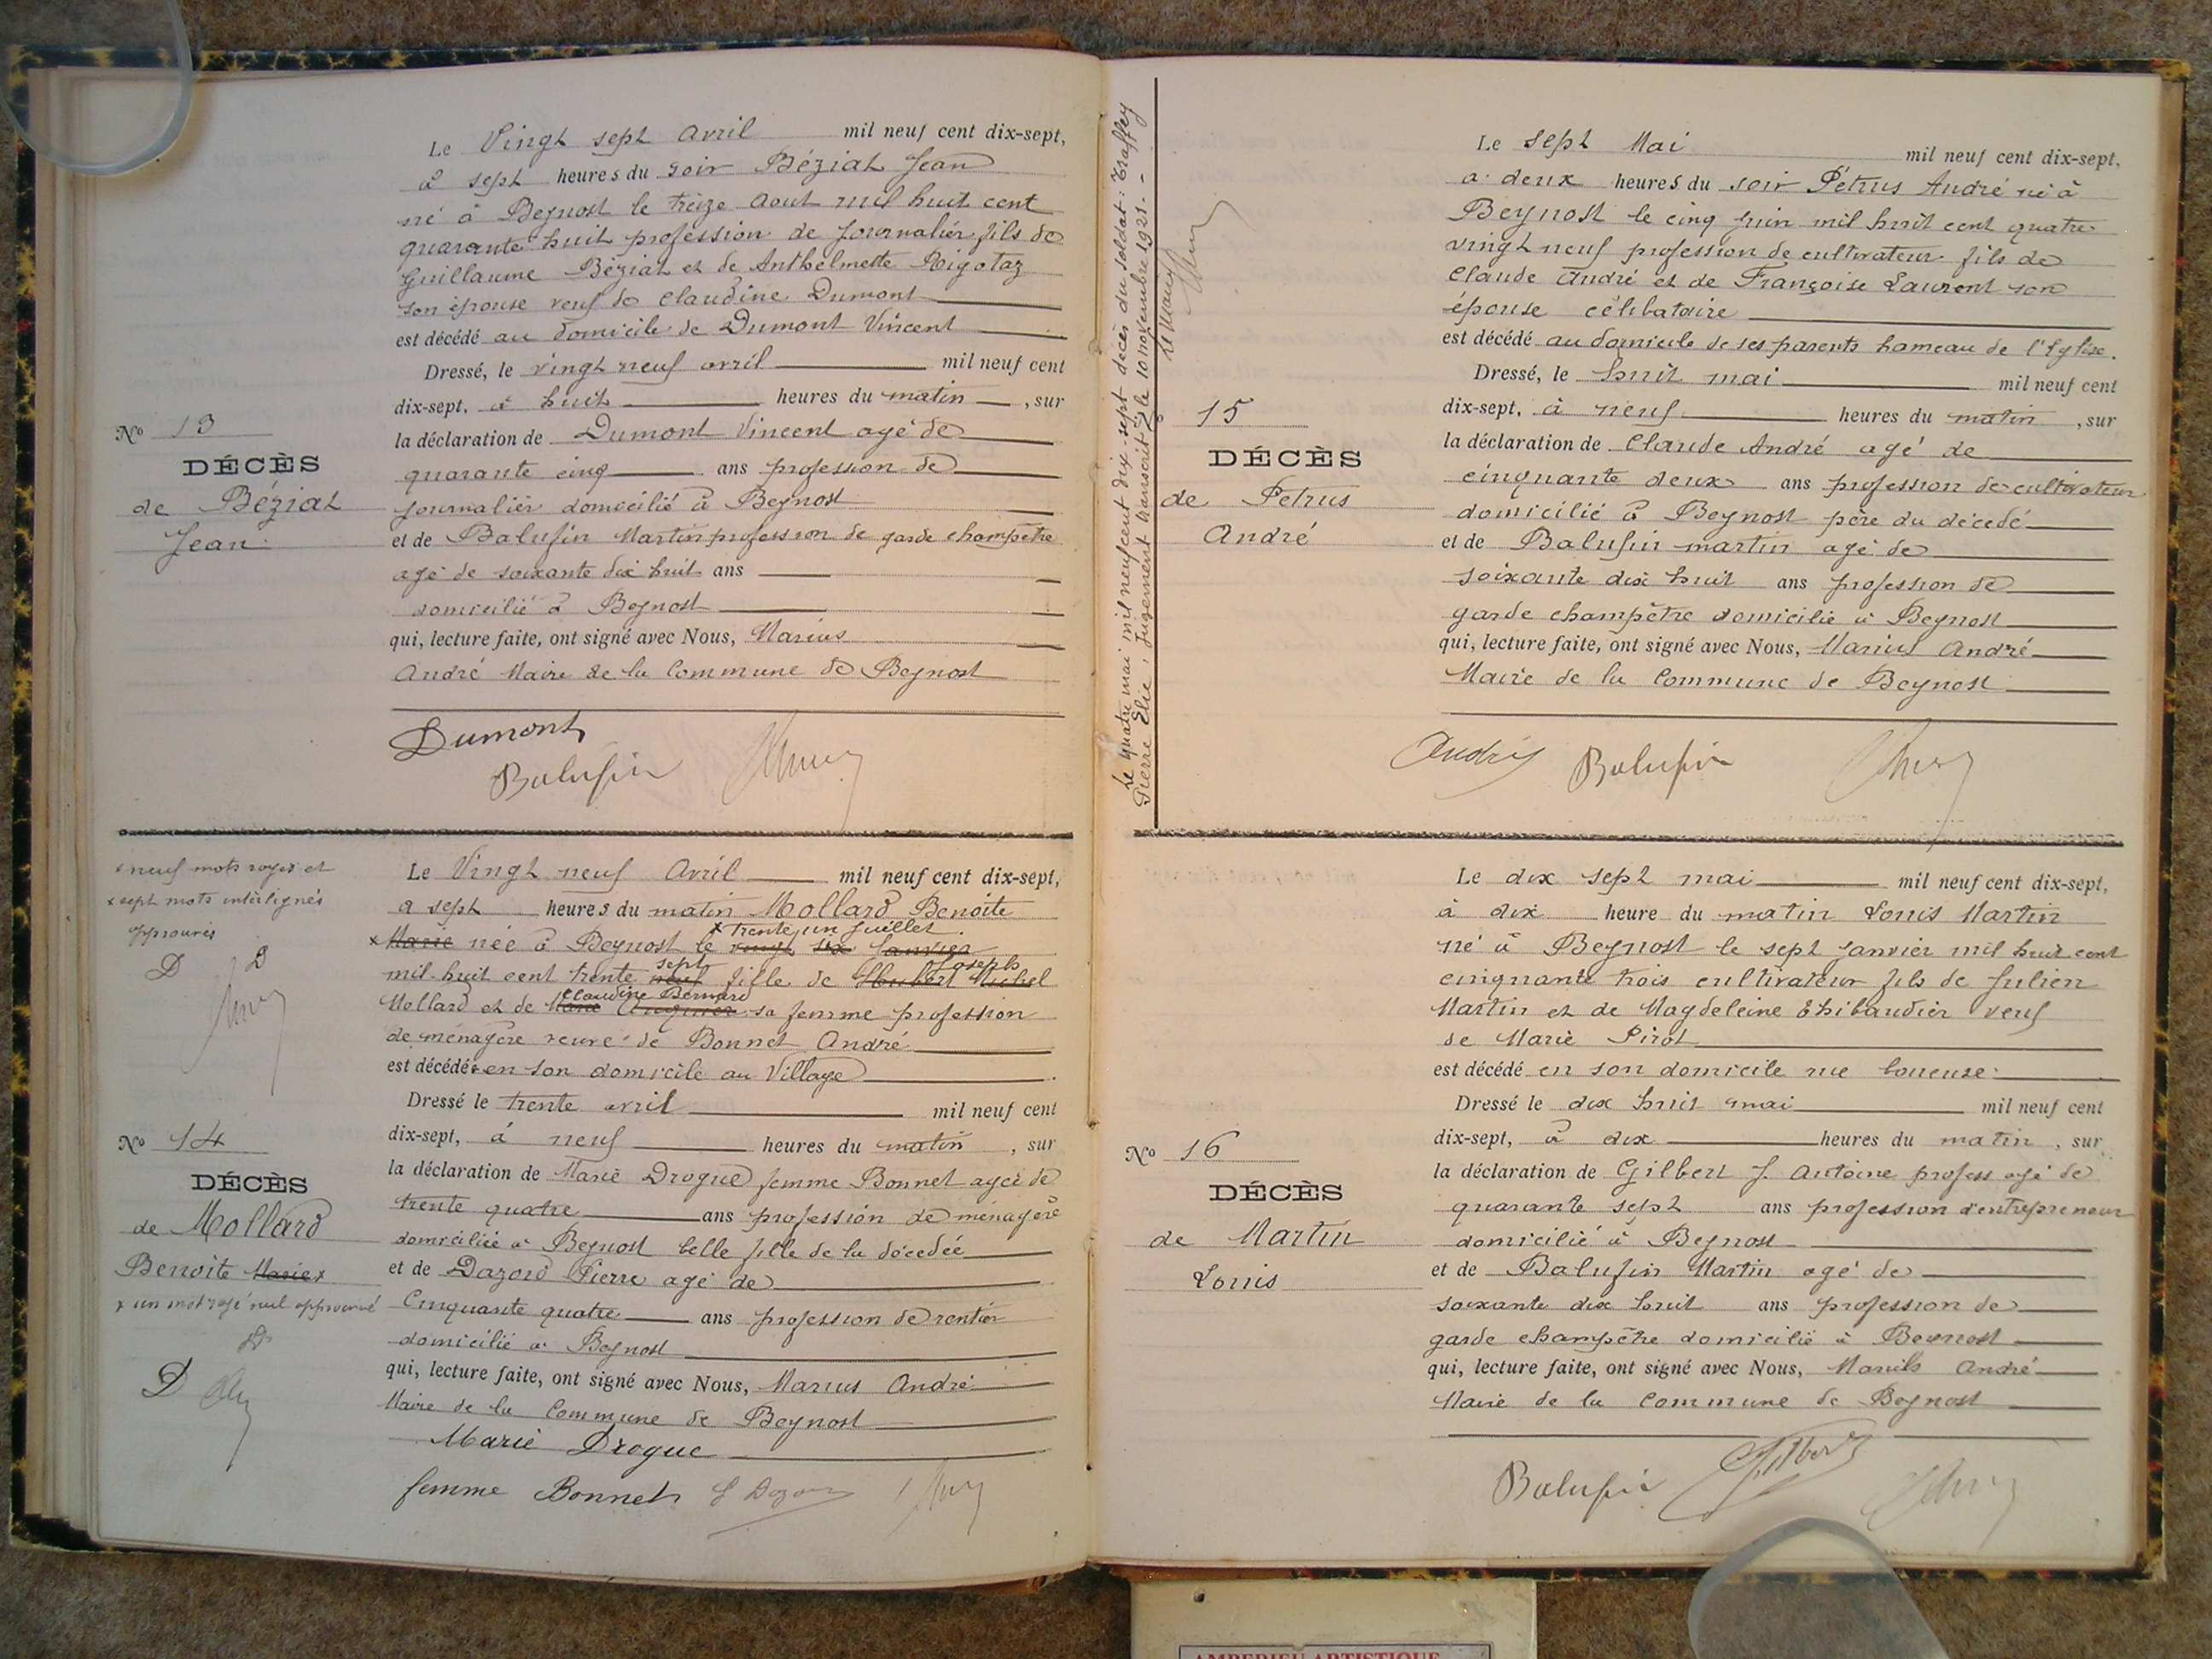 Le Vingt sept Avril mil neuf cent dix-sept,
à sept heures du soir Béziat Jean
né à Beynost le treize Aout mil huit cent
quarante huit profession de Journalier fils de
Guillaume Béziat et de Anthelmette Rigotaz
son épouse veuf de Claudine Dumont
est décédé au domicile de Dumont Vincent
Dressé, le vingt neuf avril mil neuf cent
dix-sept, à huit heures du matin, sur
la déclaration de Dumont Vincent agé de
quarante cinq ans profession de
Journalier domicilié à Beynost
et de Balufin Martin profession de garde champetre
agé de soixante dix huit ans
domicilié à Beynost
qui, lecture faite, ont signé avec Nous, Marius
André Maire de la Commune de Beynost
Nº 13
DÉCÈS
de Béziat
Jean
Dumont
Balufin
x neuf mots rayés et
x sept mots interlignés
approuvés
D D
Le Vingt neuf Avril mil neuf cent dix-sept,
a sept heures du matin Mollard Benoite
x trente un Juillet
x Marie née à Beynost le vingt six Janvier
sept Joseph
mil huit cent trente neuf fille de Hubert Michel
Claudine Bernard
Mollard et de Marie sa femme profession
de ménagère veuve de Bonnet André
est décédée en son domicile au Village
Dressé le trente avril mil neuf cent
dix-sept, à neuf heures du matin, sur
la déclaration de Marie Drogue femme Bonnet agée de
trente quatre ans profession de ménagère
domiciliée à Beynost belle fille de la décédée
et de Dazord Pierre agé de
Cinquante quatre ans profession de rentier
domicilié à Beynost
qui, lecture faite, ont signé avec Nous, Marius André
Maire de la Commune de Beynost
Marie Drogue
femme Bonnet Dazord
Nº 14
DÉCÈS
de Mollard
Benoite Marie x
x un mot rayé nul approuvé
D
D
Le quatre mai mil neuf cent dix-sept décès du soldat: Traffey
Pierre Elie, jugement transcrit le 10 novembre 1921.-
Le Maire
Le sept Mai mil neuf cent dix-sept,
a deux heures du soir Pétrus André né à
Beynost le cinq Juin mil huit cent quatre
vingt neuf profession de cultivateur fils de
Claude André et de Françoise Laurent son
épouse célibataire
est décédé au domicile de ses parents hameau de l'Eglise.
Dressé, le huit mai mil neuf cent
dix-sept, à neuf heures du matin, sur
la déclaration de Claude André agé de
cinquante deux ans profession de cultivateur
domicilié à Beynost père du décedé
et de Balufin martin agé de
soixante dix huit ans profession de
garde champêtre domicilié à Beynost
qui, lecture faite, ont signé avec Nous, Marius André
Maire de la Commune de Beynost
15
DÉCÈS
de Petrus
André
André Balufin
Le dix sept mai mil neuf cent dix-sept,
à dix heure du matin Louis Martin
né à Beynost le sept Janvier mil huit cent
cinquante trois cultivateur fils de Julien
Martin et de Magdeleine Thibaudier veuf
de Marie Pirot
est décédé en son domicile rue boueuse
Dressé le dix huit mai mil neuf cent
dix-sept, à dix heures du matin, sur
la déclaration de Gilbert J. Antoine profess agé de
quarante sept ans profession d'entrepreneur
domicilié à Beynost
et de Balufin Martin agé de
soixante dix huit ans profession de
garde champêtre domicilié à Beynost
qui, lecture faite, ont signé avec Nous, Marius André
Maire de la Commune de Beynost
Nº 16
DÉCÈS
de Martin
Louis
Balufin Gilbert
AMBERIEU ARTISTIQUE